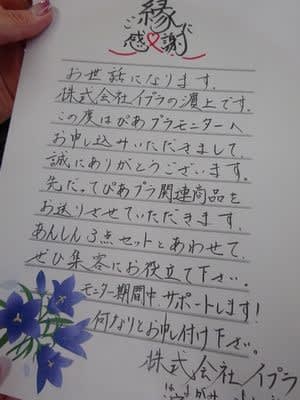 ご縁に
感謝
お世話になります。
株式会社イプラの濱上です。
この度はぴあプラモニターへ
お申し込みいただきまして、
誠にありがとうございます。
先だってぴあプラ関連商品を
お送りさせていただきます。
あんしん3点セットとあわせて、
ぜひ集客にお役立て下さい。
モニター期間中サポートします!
何なりとお申し付け下さい。
株式会社イプラ